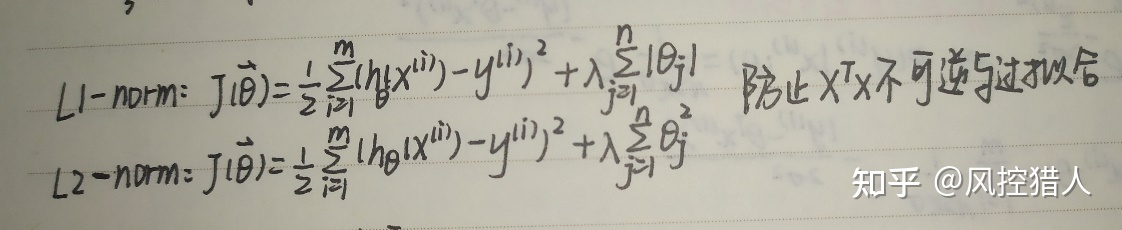 L1-norm: J(θ⃗)=½∑_{i=1}^{m}(h_θ(x^{(i)})-y^{(i)})²+λ∑_{j=1}^{n}|θ_j| 防止X^TX不可逆与过拟合
L2-norm: J(θ⃗)=½∑_{i=1}^{m}(h_θ(x^{(i)})-y^{(i)})²+λ∑_{j=1}^{n}θ_j²
知乎 @风控猎人